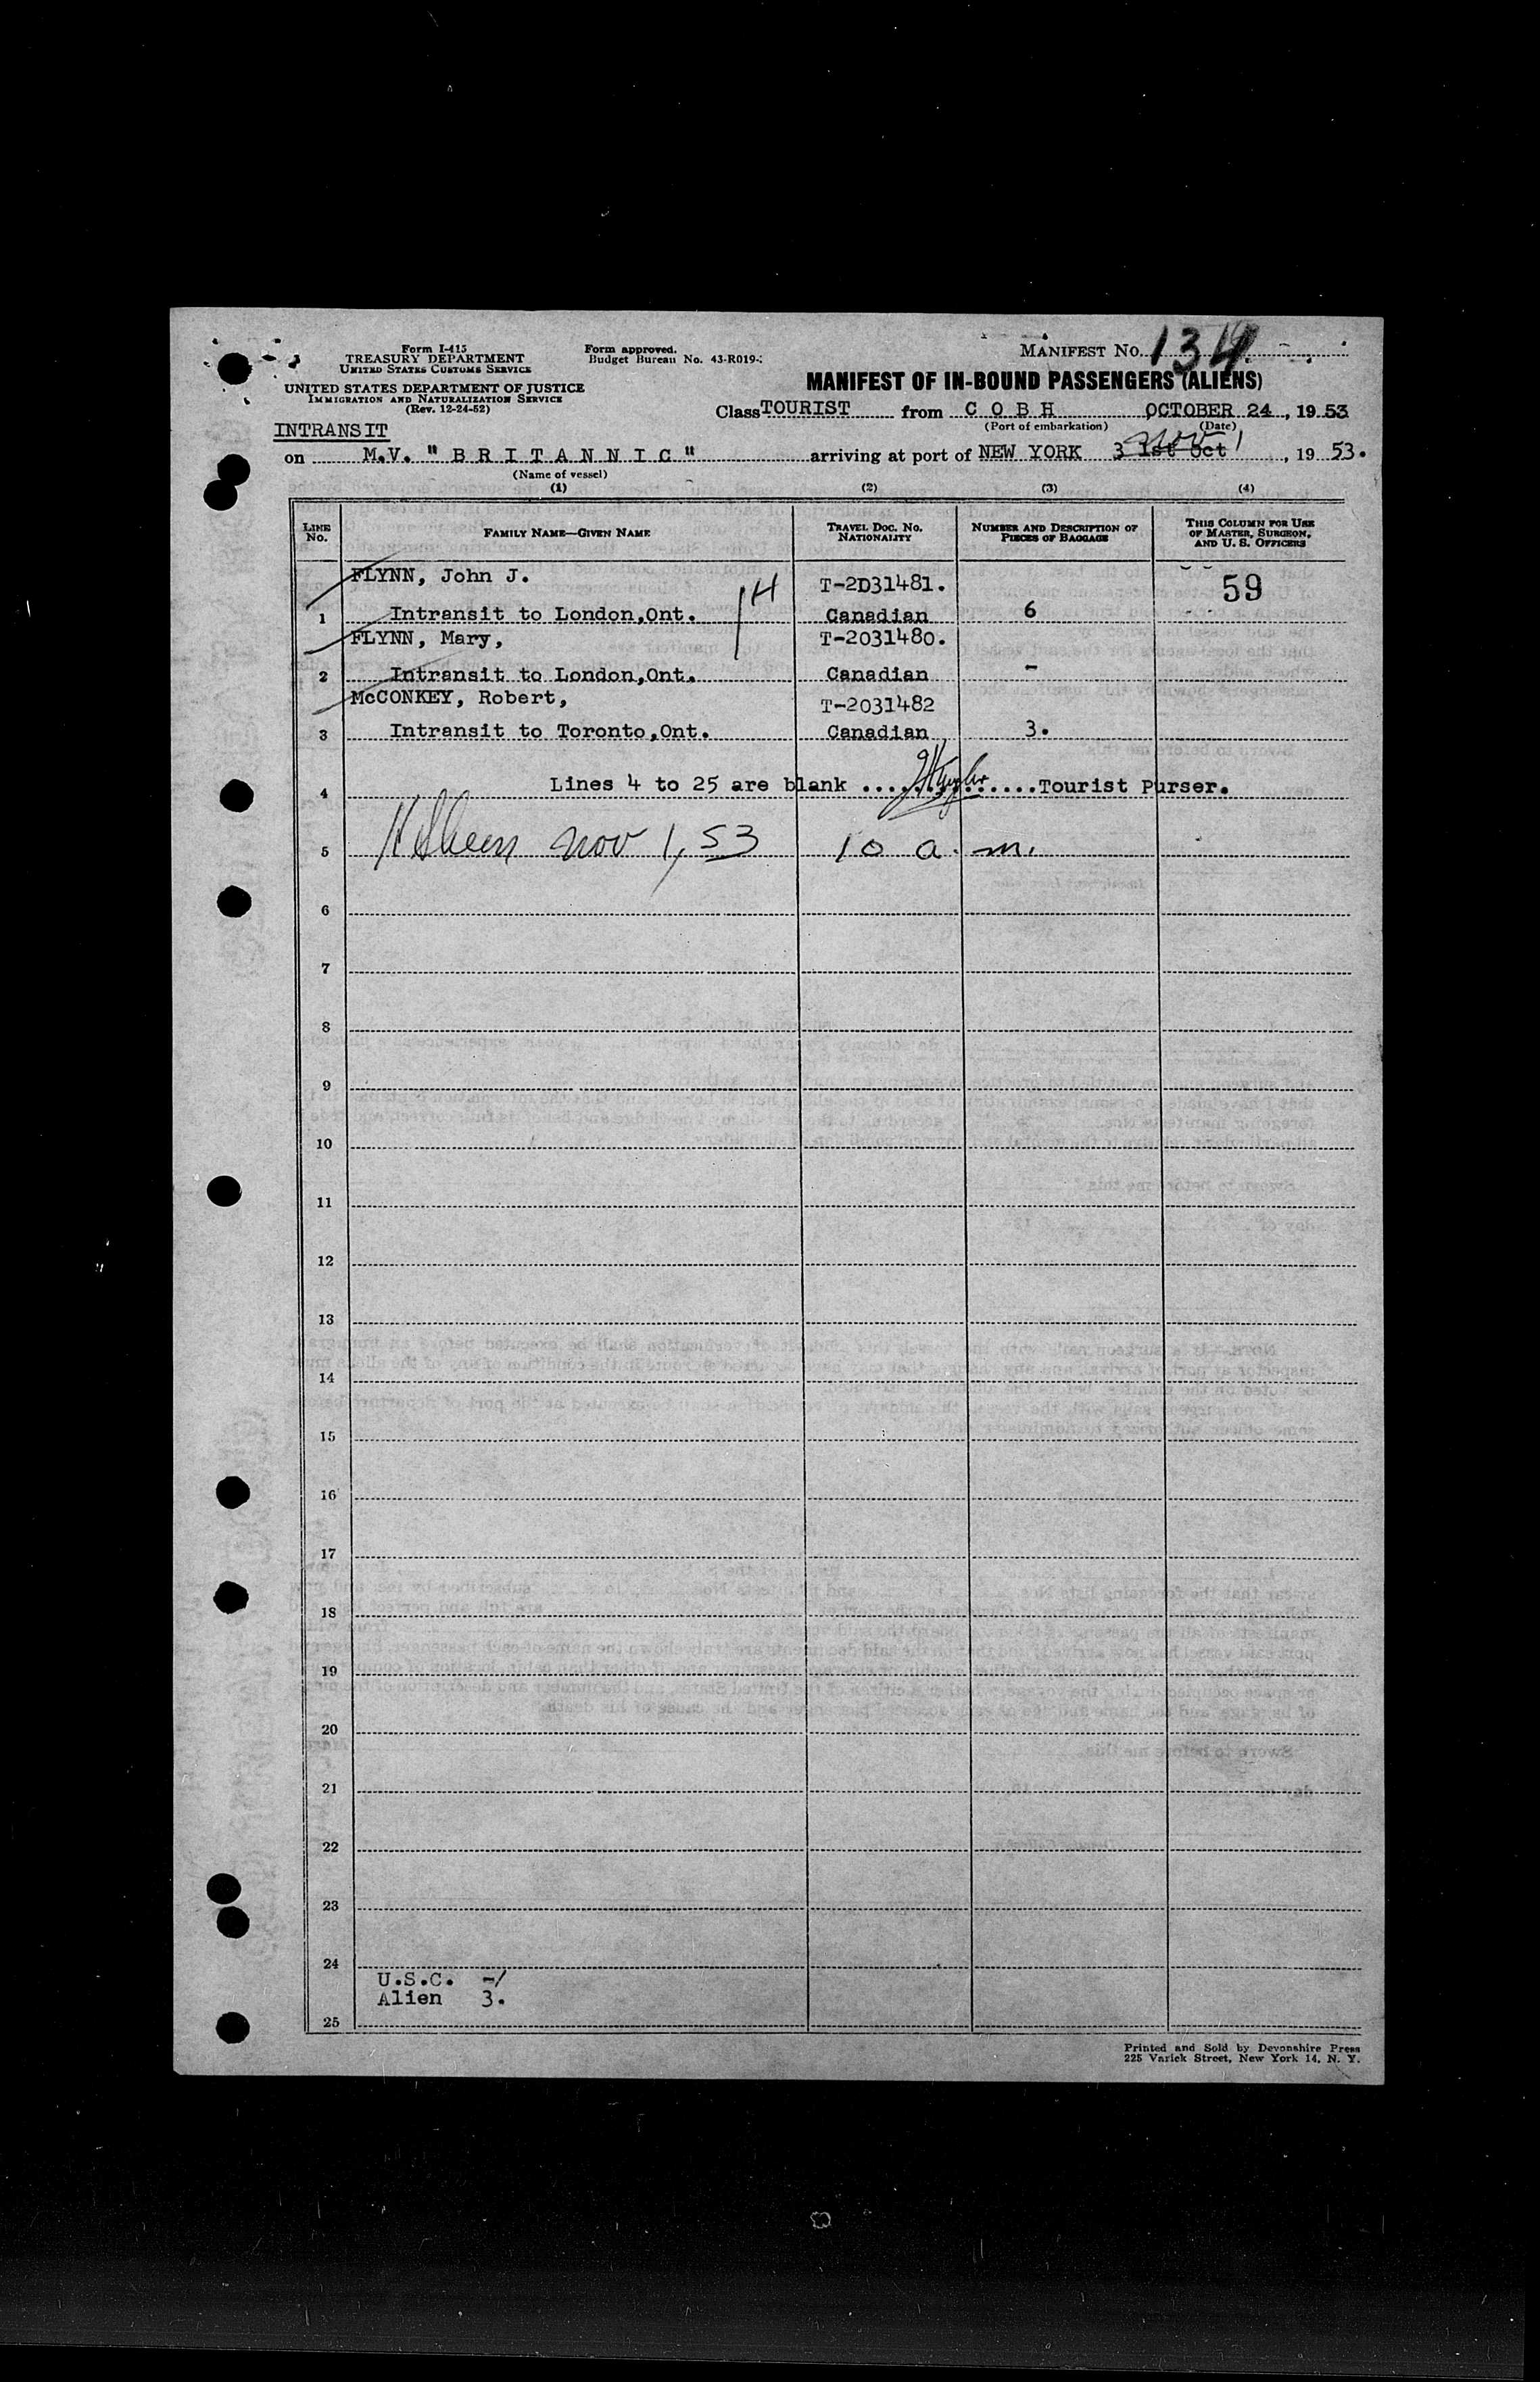 Form I-415
TREASURY DEPARTMENT
UNITED STATES CUSTOMS SERVICE
UNITED STATES DEPARTMENT OF JUSTICE
IMMIGRATION AND NATURALIZATION SERVICE
(Rev. 12-24-52)
Form approved.
Budget Bureau No. 43-R019-
MANIFEST No. 134
MANIFEST OF IN-BOUND PASSENGERS (ALIENS)
Class TOURIST from C O B H OCTOBER 24, 1953
(Port of embarkation) (Date)
INTRANSIT
on M.V. "B R I T A N N I C" arriving at port of NEW YORK 31st Oct Nov 1, 1953.
(Name of vessel)
(1) (2) (3) (4)
LINE No. FAMILY NAME—GIVEN NAME TRAVEL DOC. No. NATIONALITY NUMBER AND DESCRIPTION OF PIECES OF BAGGAGE THIS COLUMN FOR USE OF MASTER, SURGEON, AND U. S. OFFICERS
FLYNN, John J. T-2D31481. 59
1 Intransit to London,Ont. Canadian 6
FLYNN, Mary, T-2031480.
2 Intransit to London,Ont. Canadian -
McCONKEY, Robert, T-2031482
3 Intransit to Toronto,Ont. Canadian 3.
4 Lines 4 to 25 are blank .................Tourist Purser.
5 Nov 1, 53 10 a.m.
6
7
8
9
10
11
12
13
14
15
16
17
18
19
20
21
22
23
24
U.S.C. -/
Alien 3.
25
Printed and Sold by Devonshire Press
225 Varick Street, New York 14, N. Y.